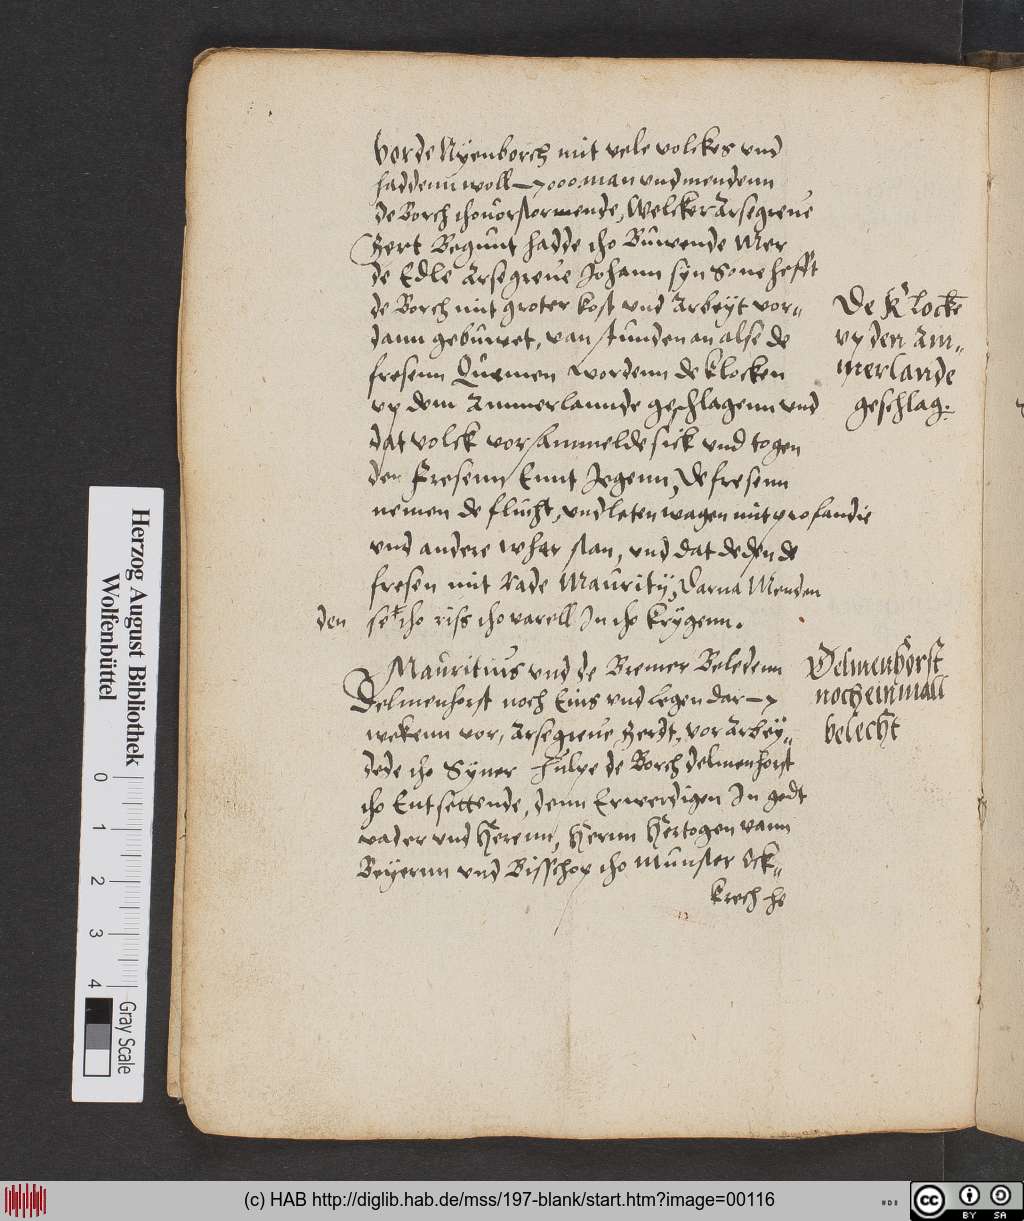 vor de Nyenborch mit vele volckes vnd
haddenn woll 7000 man vnd mendenn
de Borch tho vorstormende, Welcker Arsegreue
Gert Begunt hadde tho Buwende Mer
de Edle Arsegreue Johann syn Sone hefft
de Borch mit groter kost vnd Arbeyt vor„
dann gebuwet, van stunden an alse de
fresenn Quemen wordenn de klocken
vp dem Ammerlannde geschlagenn vnd
dat volck vorsammelde sick vnd togen
den Fresenn Ennt Jegenn, De fresenn
nemen de flucht, vnd leten wagen mit profande
vnd andere whar stan, vnd dat deden de
fresen mit Rade Maurity, Darna Menden
den se tho riss tho varell In tho krygenn.
Mauritius vnd de Bremer Beledenn
Delmenhorst noch Eins vnd legen dar 7
wekenn vor, Arsegreue Gerdt, vor Arbey„
dede tho Syner hulpe de Borch delmenhorst
tho Entsettende, denn Erwerdigen In godt
vader vnd Herenn, Hernn Hertogen vann
Beyernn vnd Bisschop tho Munster Ock„
krech he
De Klocke
vp den Am„
merlande
geschlag.
Delmenhorst
noch einmall
belecht
Herzog August Bibliothek
Wolfenbüttel
0 1 2 3 4
Gray Scale
(c) HAB http://diglib.hab.de/mss/197-blank/start.htm?image=00116
cc BY SA